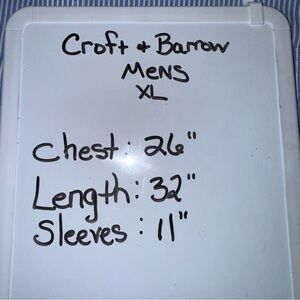 Croft + Barrow
Mens
XL
Chest: 26"
Length: 32"
Sleeves: 11"